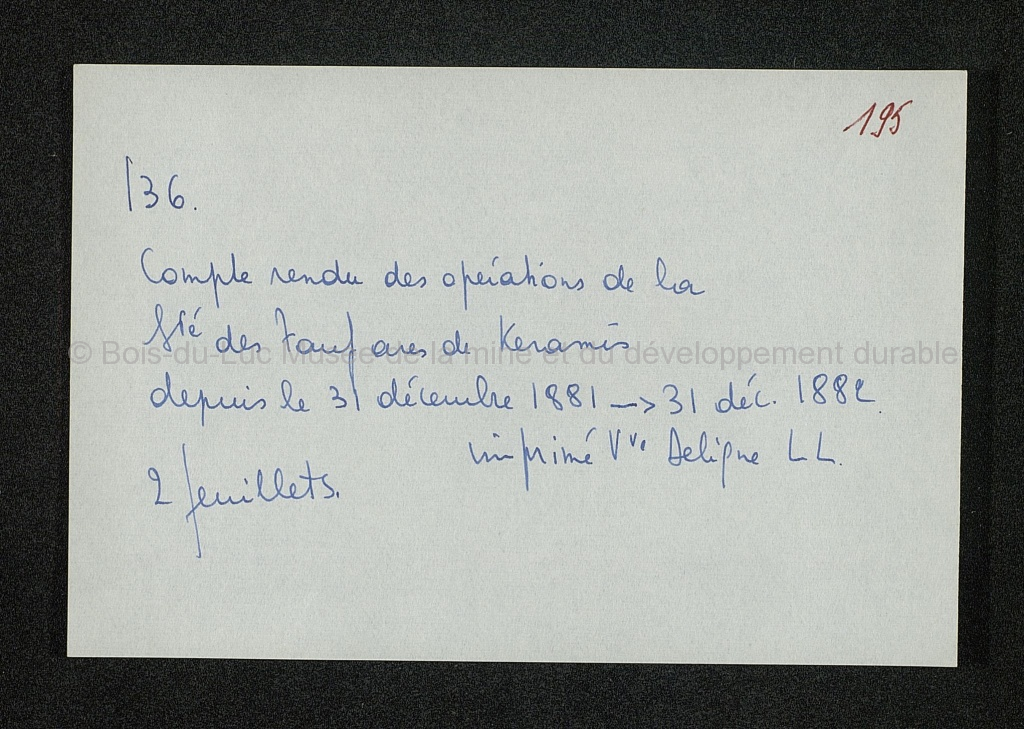 195
136.
Compte rendu des opérations de la
Sté des Fanfares de Keramis
© Bois-du-Luc Musée de la mine et du développement durable
depuis le 31 décembre 1881 -> 31 déc. 1882
imprimé Vve Deligne LL.
2 feuillets.